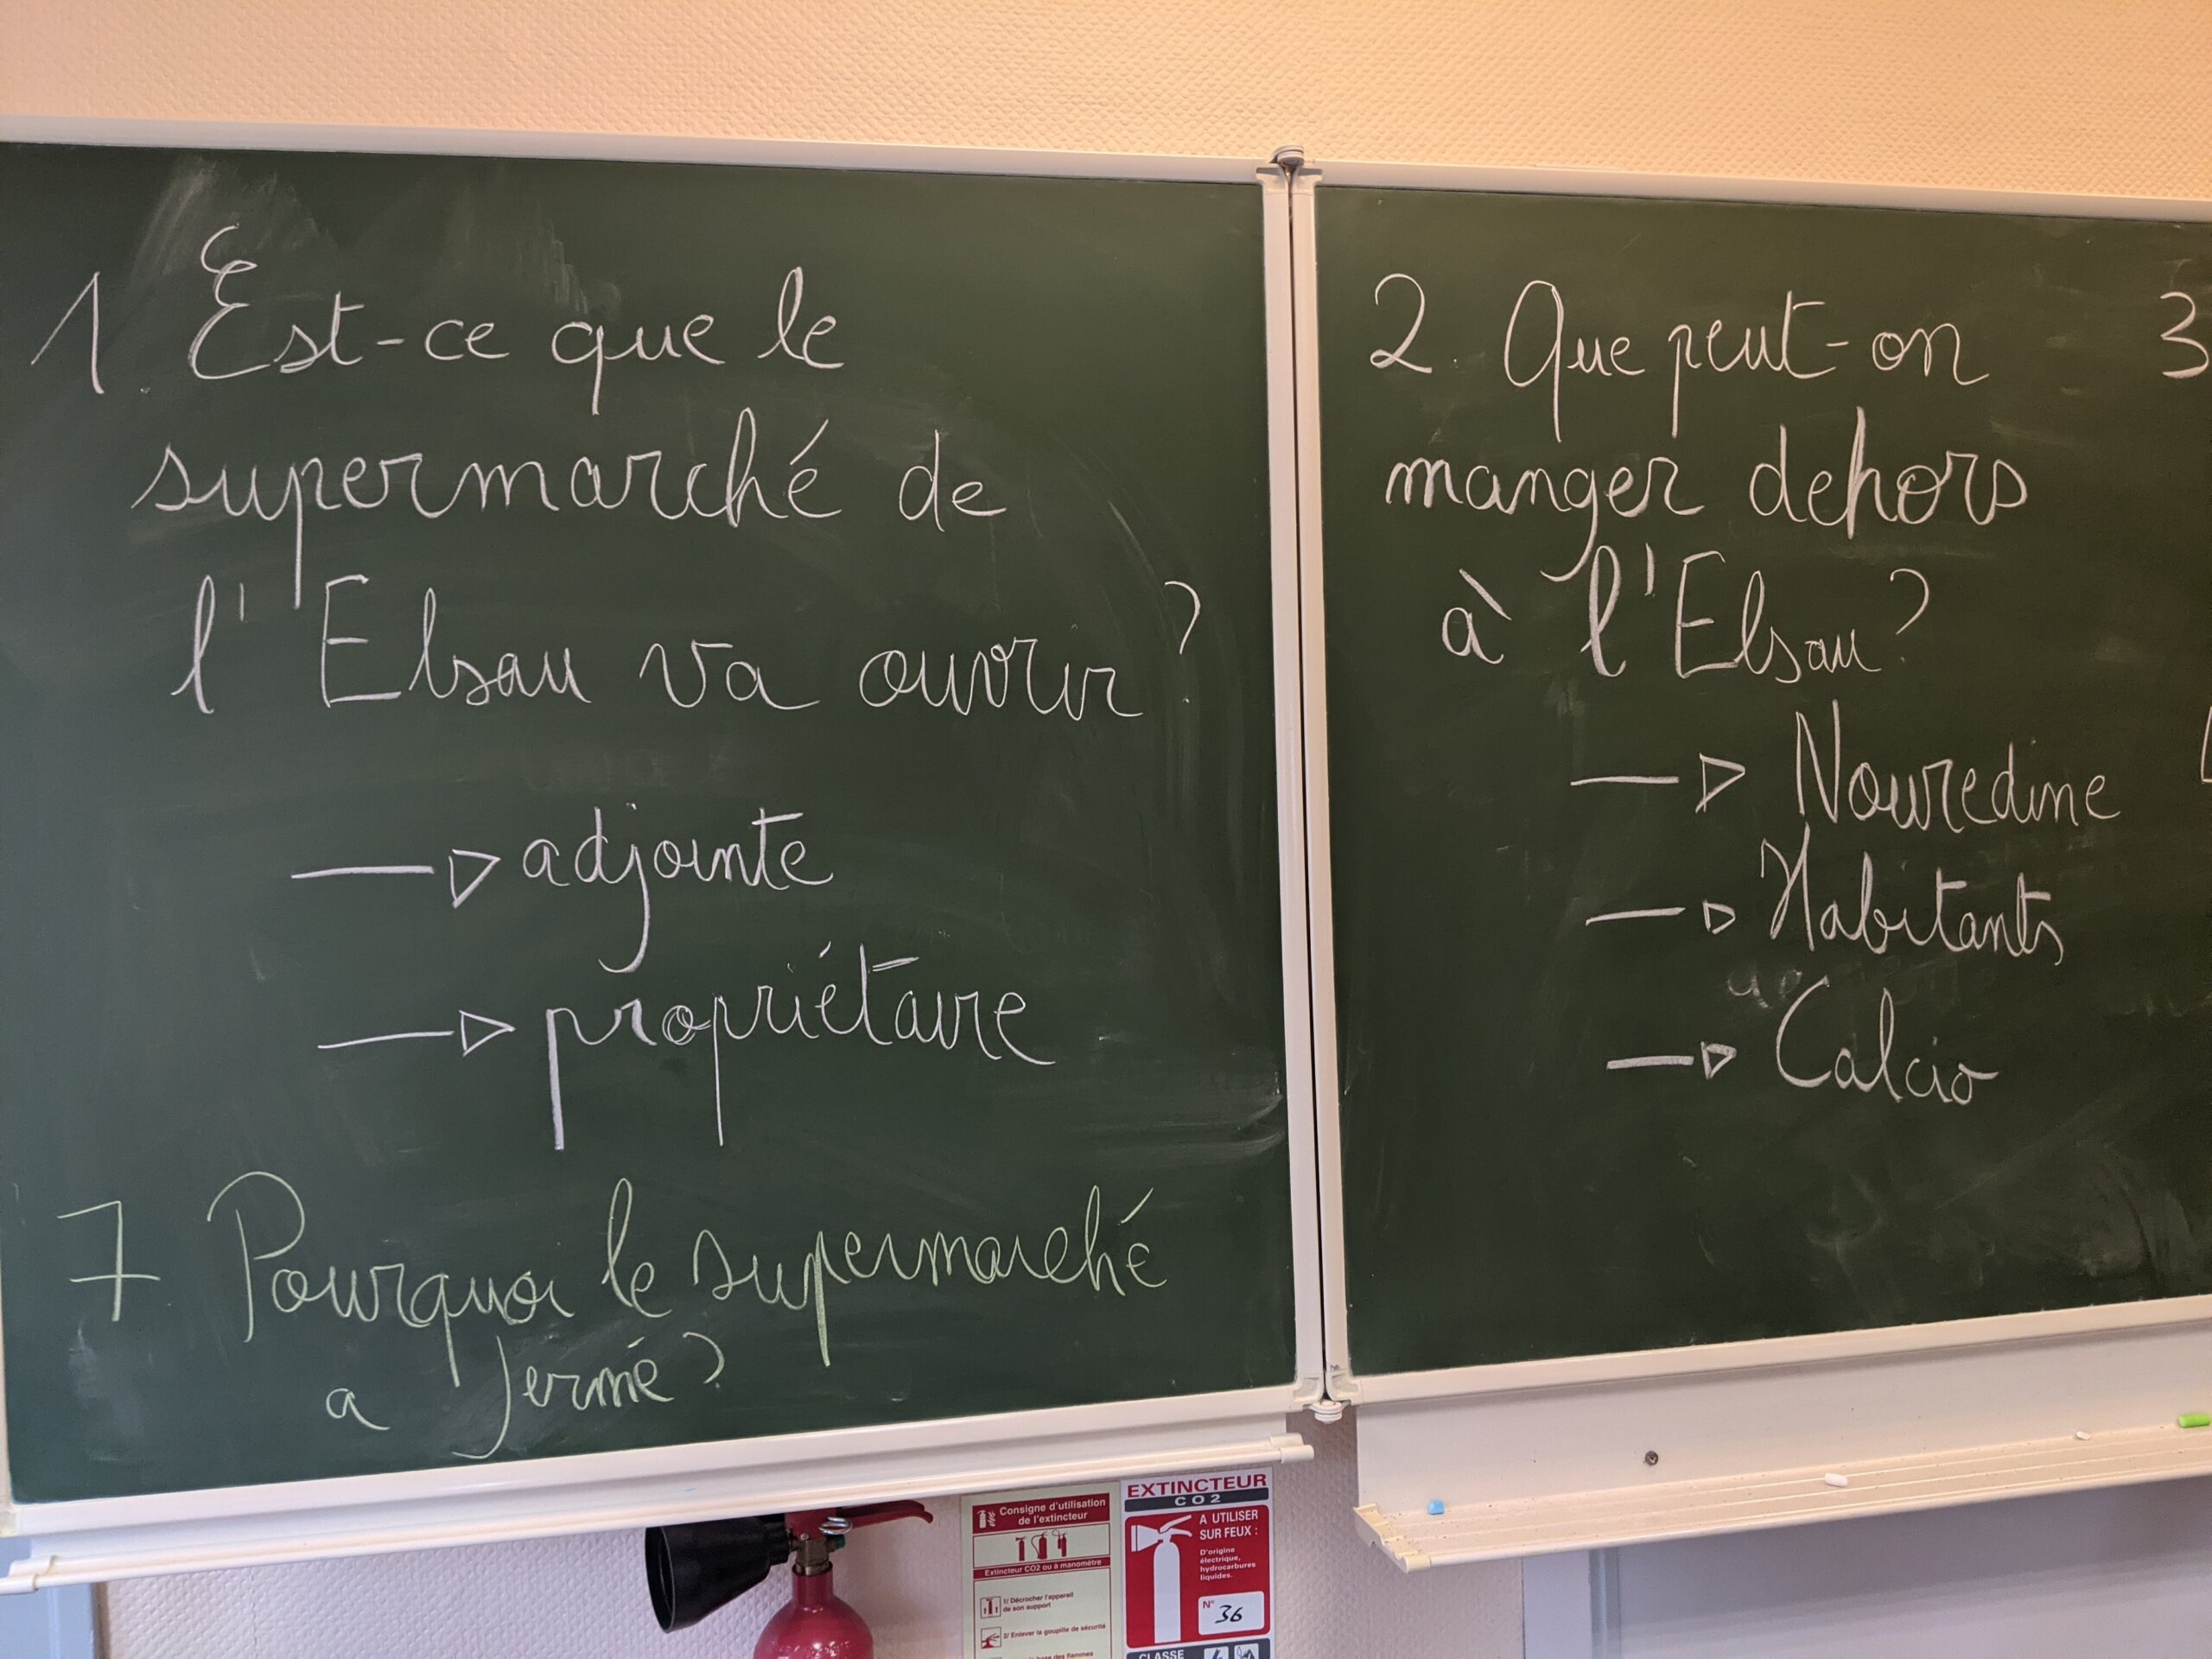 1. Est-ce que le
supermarché de
l'Elsau va ouvrir ?
→ adjointe
→ propriétaire
7. Pourquoi le supermarché
a fermé ?
2. Que peut-on
manger dehors
à l'Elsau ?
→ Nouredine
→ Habitants
→ Calcio
3
Consigne d'utilisation
de l'extincteur
Extincteur CO2 ou à manomètre
1/ Décrocher l'appareil
de son support
2/ Enlever la goupille de sécurité
EXTINCTEUR
CO2
A UTILISER
SUR FEUX :
D'origine
électrique,
hydrocarbures
liquides.
N° 36
CLASSE